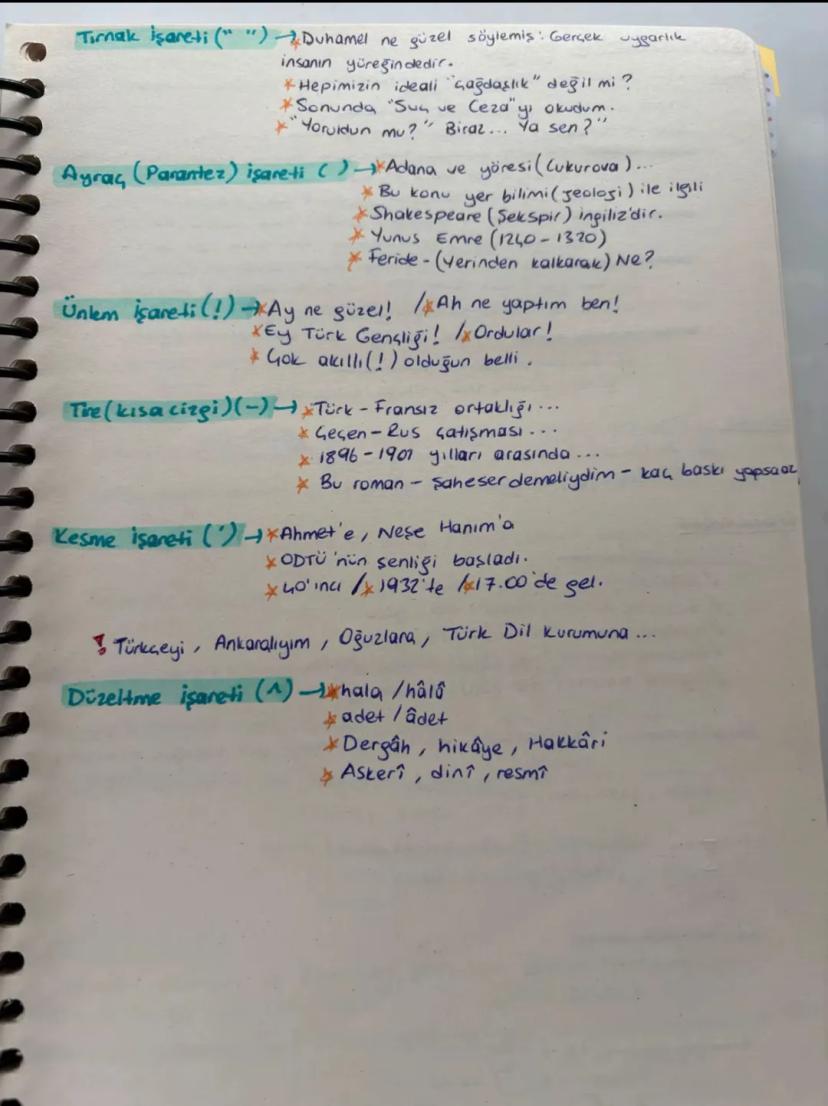 Tırnak İşareti (" ") → * Duhamel ne güzel söylemiş: Gerçek uygarlık
insanın yüreğindedir.
* Hepimizin ideali "çağdaşlık" değil mi?
* Sonunda "Suç ve Ceza"yı okudum.
* "Yoruldun mu?" Biraz... Ya sen?"
Ayraç (Parantez) işareti ( ) → * Adana ve yöresi (Çukurova)...
* Bu konu yer bilimi (jeoloji) ile ilgili
* Shakespeare (Şekspir) ingiliz'dir.
* Yunus Emre (1240 - 1320)
* Feride - (Yerinden kalkarak) Ne?
Ünlem işareti (!) → * Ay ne güzel! / * Ah ne yaptım ben!
* Ey Türk Gençliği! / * Ordular!
* Çok akıllı(!) olduğun belli.
Tire (kısa çizgi) (-) → * Türk - Fransız ortaklığı...
* Çeçen - Rus çatışması...
* 1896 - 1901 yılları arasında...
* Bu roman - şaheser demeliydim - kaç baskı yapsa az
Kesme işareti (') → * Ahmet'e, Neşe Hanım'a
* ODTÜ'nün şenliği başladı.
* 40'ıncı / * 1932'te / * 17.00'de gel.
! Türkçeyi, Ankaralıyım, Oğuzlara, Türk Dil Kurumuna...
Düzeltme işareti (^) → * hala / hâlâ
* adet / âdet
* Dergâh, hikâye, Hakkâri
* Askerî, dinî, resmî